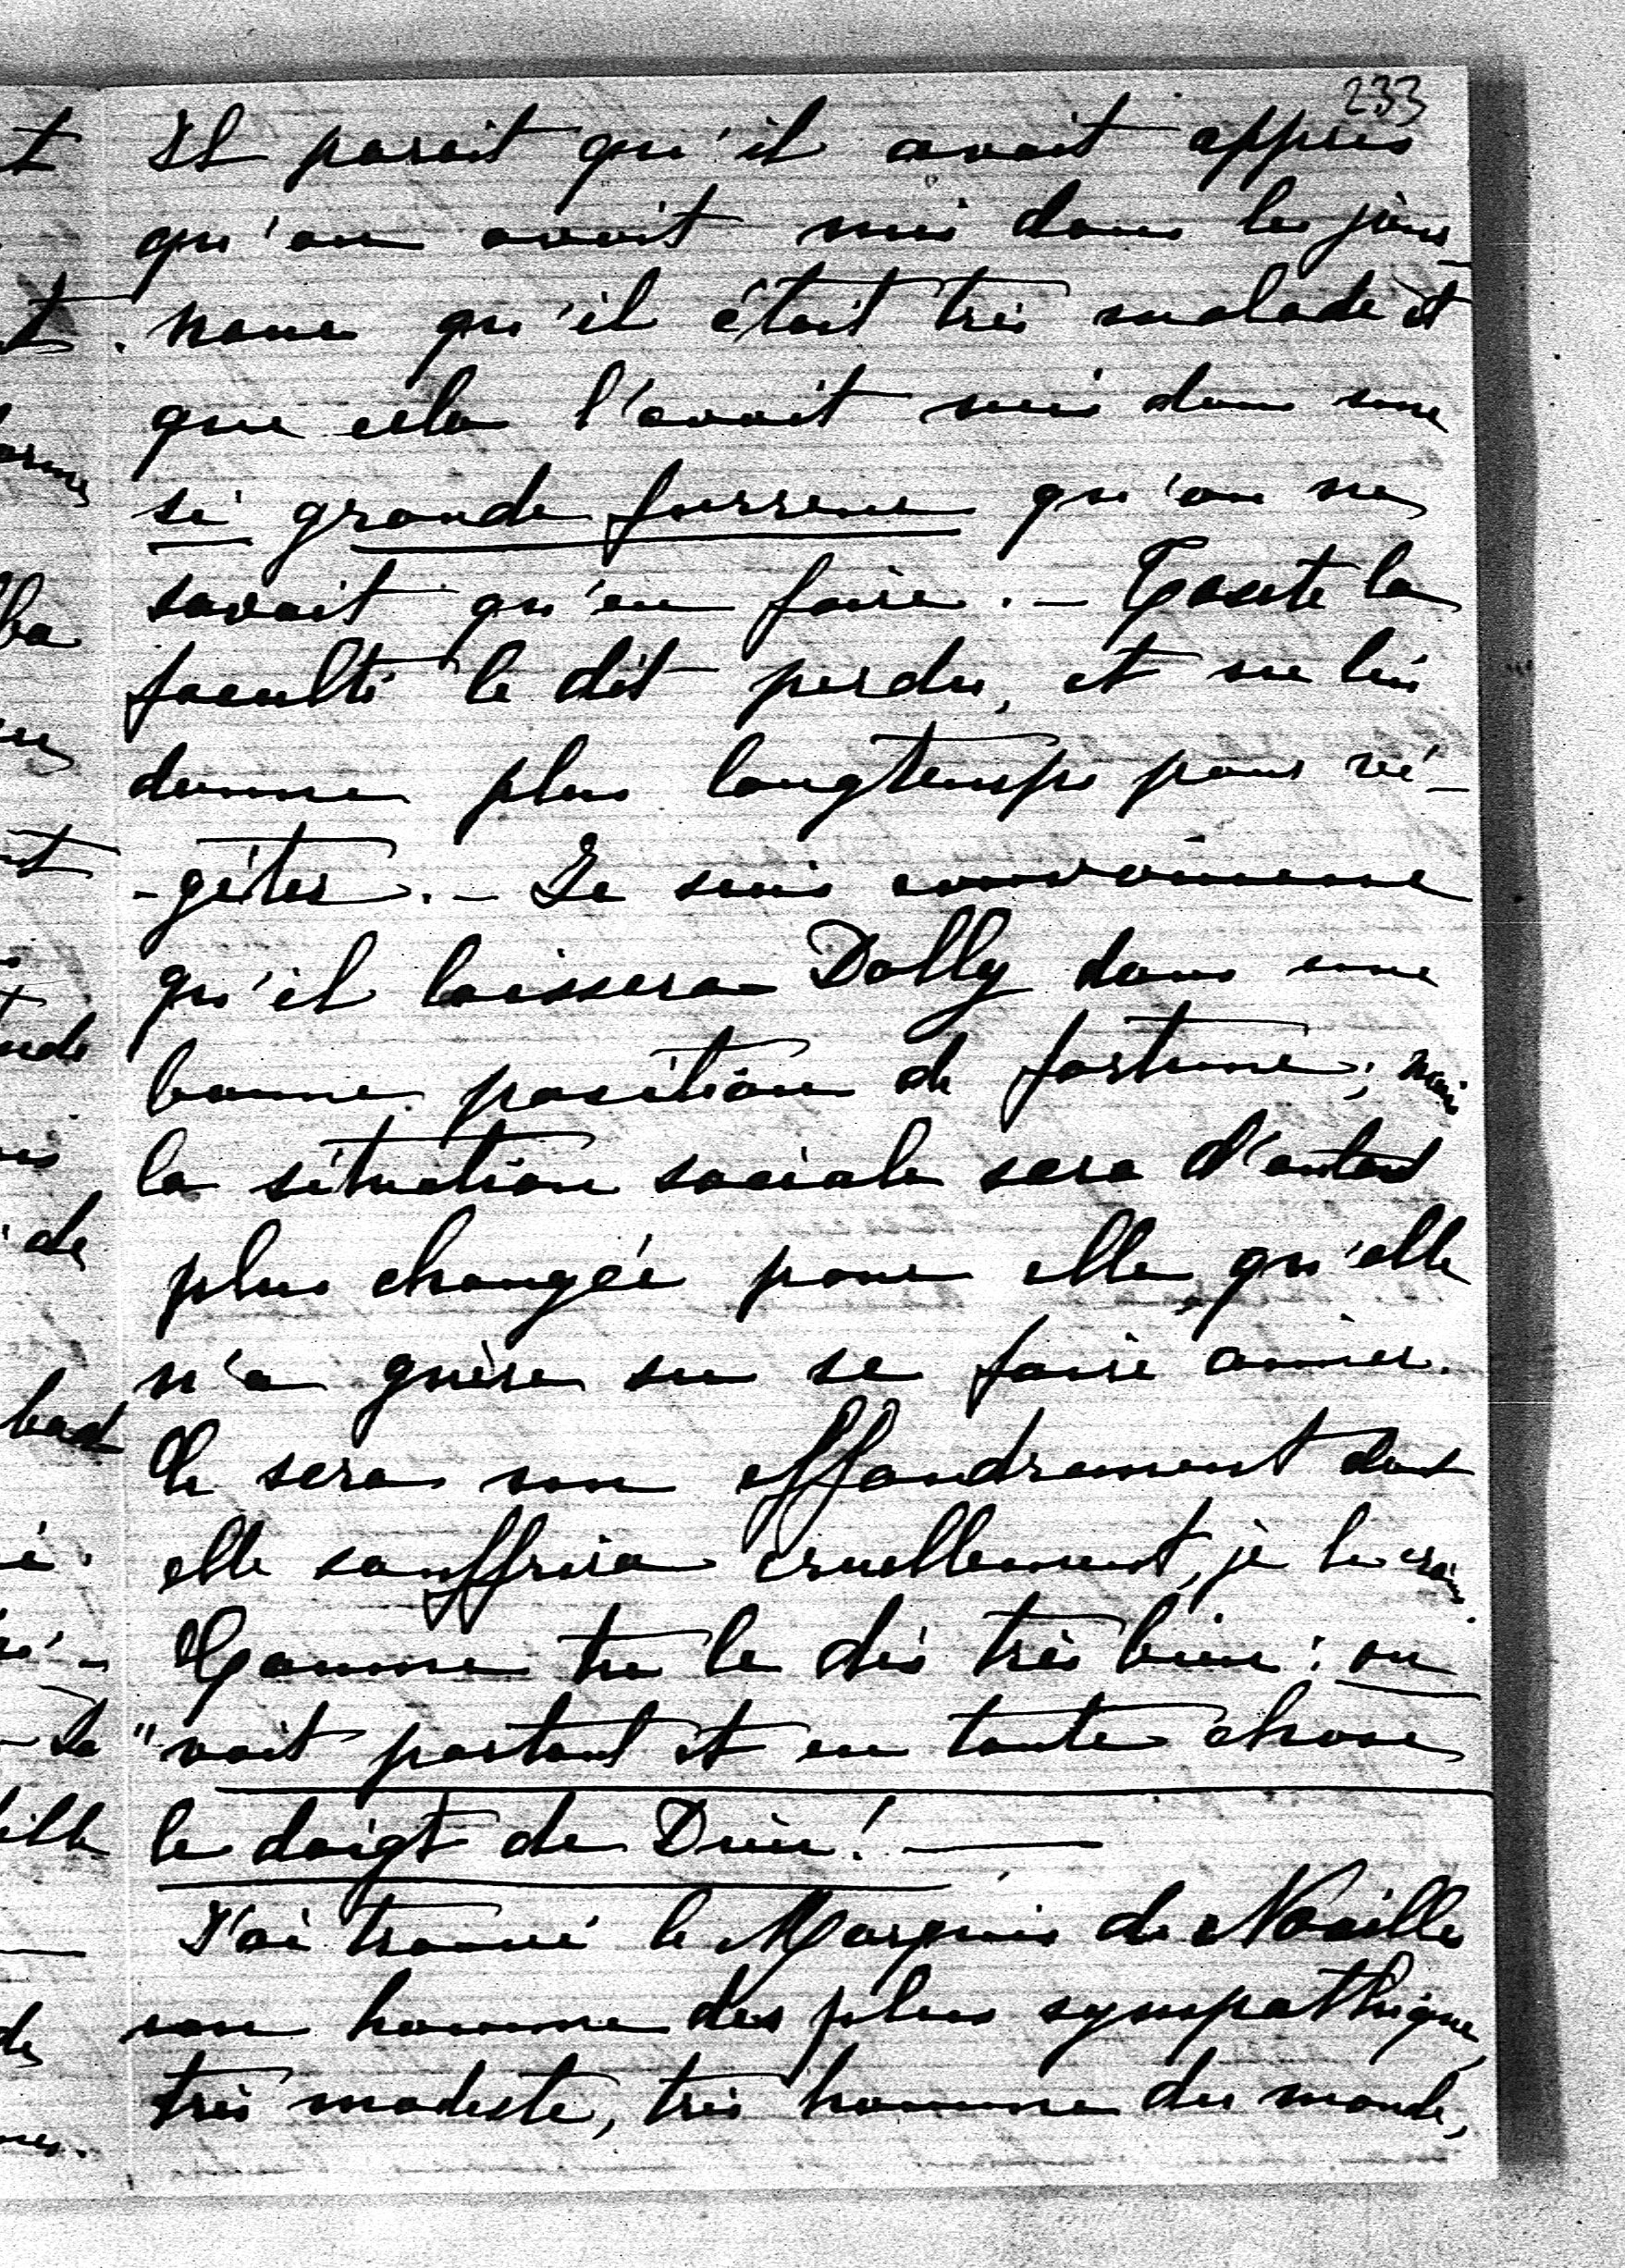 233
Il parait qu'il avait appris
qu'on avait mis dans les jour-
naux qu'il était très malade et
que cela l'avait mis dans une
si grande furreur qu'on ne
savait qu'en faire. - Toute la
faculté le dit perdu, et ne lui
donne plus longtemps pour vé-
-géter. - Je suis convaincue
qu'il laissera Dolly dans une
bonne position de fortune; mais
la situation sociale sera d'autant
plus changée pour elle, qu'elle
n'a guère su se faire aimer.
Ce sera un effondrement dont
elle souffrira cruellement, je le crains.
Comme tu le dis très bien: on
"voit partout et en toute chose
le doigt de Dieu! -
J'ai trouvé le Marquis de Noailles
un homme des plus sympathique,
très modeste, très homme du monde,